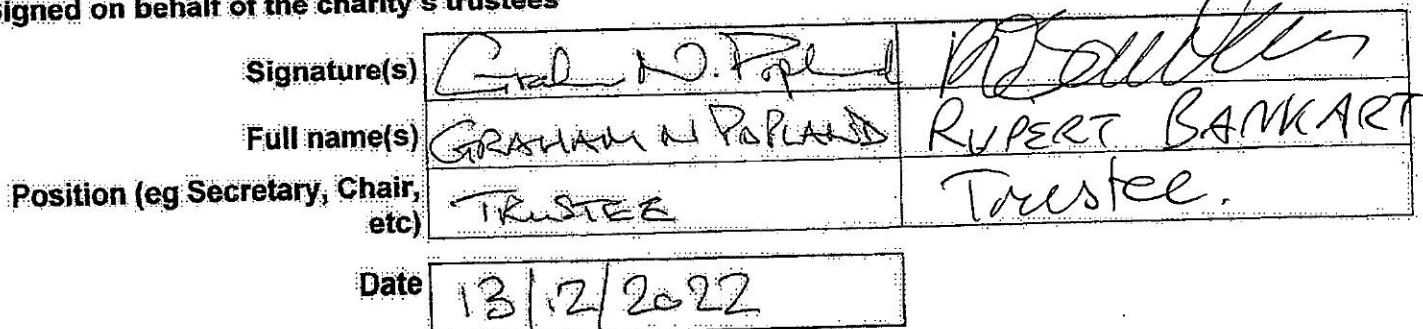 Signed on behalf of the charity's trustees
Signature(s) Graham N. Popland
Full name(s) GRAHAM N POPLAND RUPERT BANKART
Position (eg Secretary, Chair, etc) TRUSTEE Trustee.
Date 13/12/2022